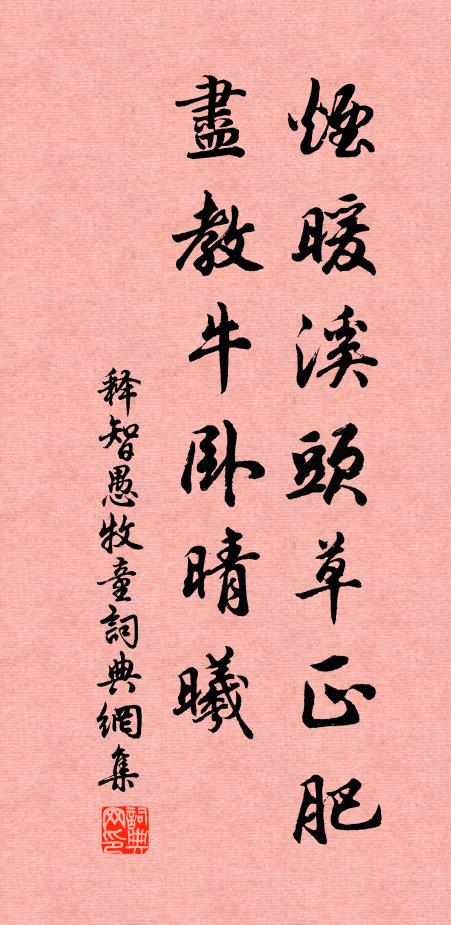 煙暖溪頭草正肥
盡教牛卧晴曦
释智愚牧童詞典網集
詞典网印